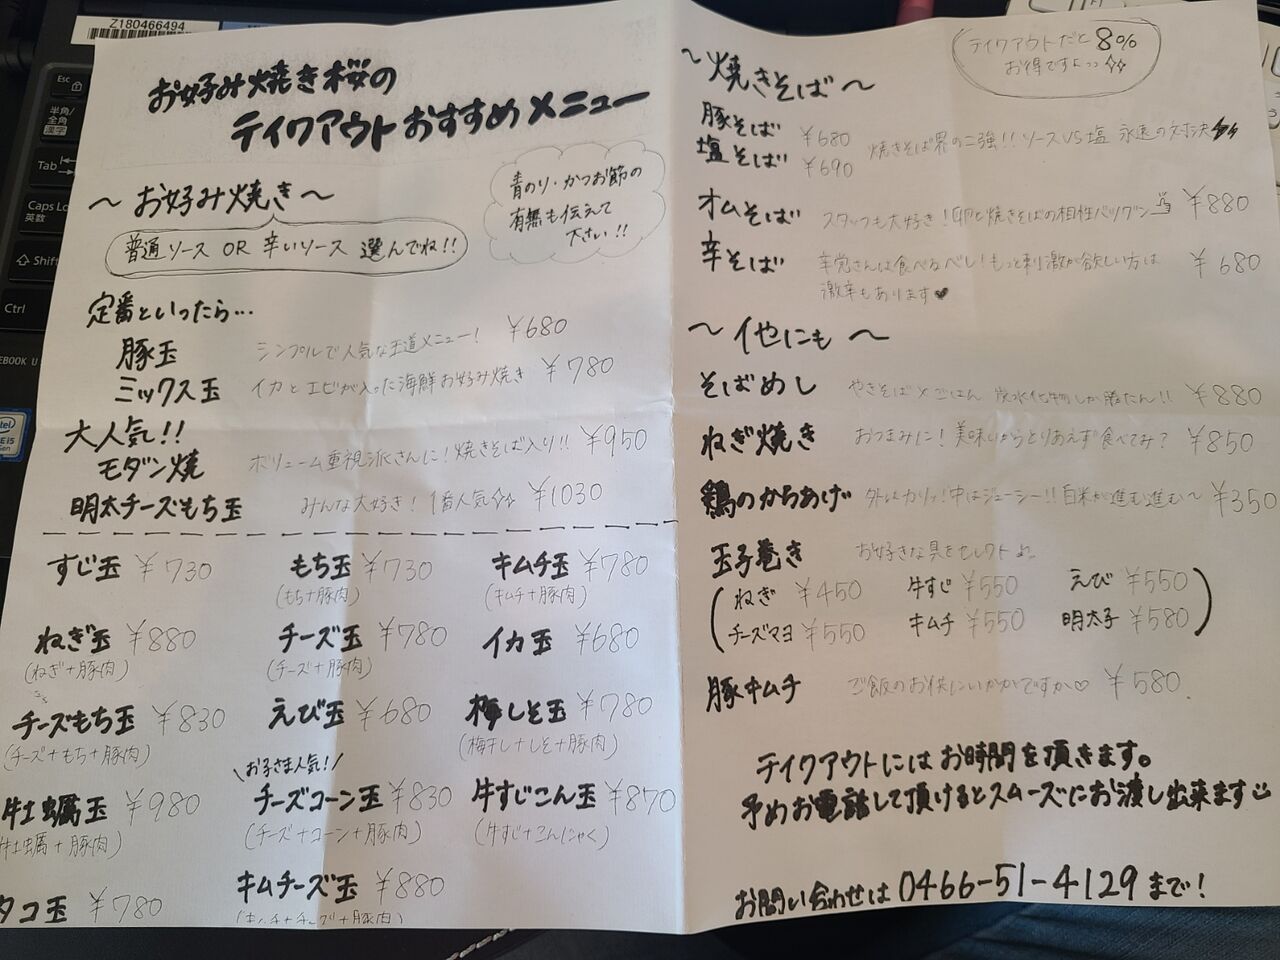 Z180466494
Esc
半角/
全角
漢字
Tab
Caps Lo
英数
Shift
Ctrl
EBOOK U
お好み焼き桜の
テイクアウトおすすめメニュー
～お好み焼き～
普通ソース OR 辛いソース 選んでね!!
青のり・かつお節の
有無も伝えて
下さい!!
定番といったら…
豚玉 シンプルで人気な王道メニュー! ¥680
ミックス玉 イカとエビが入った海鮮お好み焼き ¥780
大人気!!
モダン焼 ボリューム重視派さんに!焼きそば入り!! ¥950
明太チーズもち玉 みんな大好き! 1番人気 ¥1030
すじ玉 ¥730
もち玉 ¥730
(もち+豚肉)
キムチ玉 ¥780
(キムチ+豚肉)
ねぎ玉 ¥880
(ねぎ+豚肉)
チーズ玉 ¥780
(チーズ+豚肉)
イカ玉 ¥680
チーズもち玉 ¥830
(チーズ+もち+豚肉)
えび玉 ¥680
梅しそ玉 ¥780
(梅干し+しそ+豚肉)
牡蠣玉 ¥980
牡蠣+豚肉)
\お子さま人気!/
チーズコーン玉 ¥830
(チーズ+コーン+豚肉)
牛すじこん玉 ¥870
(牛すじ+こんにゃく)
タコ玉 ¥780
キムチーズ玉 ¥880
(キムチ+チーズ+豚肉)
テイクアウトだと8%
お得ですしっっ
～焼きそば～
豚そば ¥680
塩そば ¥690
焼きそば界の二強!!ソースVS塩 永遠の対決
オムそば スタッフも大好き!卵と焼きそばの相性バツグン ¥880
辛そば 辛党さんは食べるべし!もっと刺激が欲しい方は ¥680
激辛もあります♥
～他にも～
そばめし やきそば×ごはん 炭水化物しか勝たん!! ¥880
ねぎ焼き おつまみに!美味いからとりあえず食べてみ? ¥850
鶏のからあげ 外はカリッ!中はジューシー!!白米が進む進む～ ¥350
玉子巻き お好きな具をセレクト
ねぎ ¥450 牛すじ ¥550 えび ¥550
チーズマヨ ¥550 キムチ ¥550 明太子 ¥580
豚キムチ ご飯のお供にいかがですか♡ ¥580
テイクアウトにはお時間を頂きます。
予めお電話して頂けるとスムーズにお渡し出来ます
お問い合わせは 0466-51-4129まで!